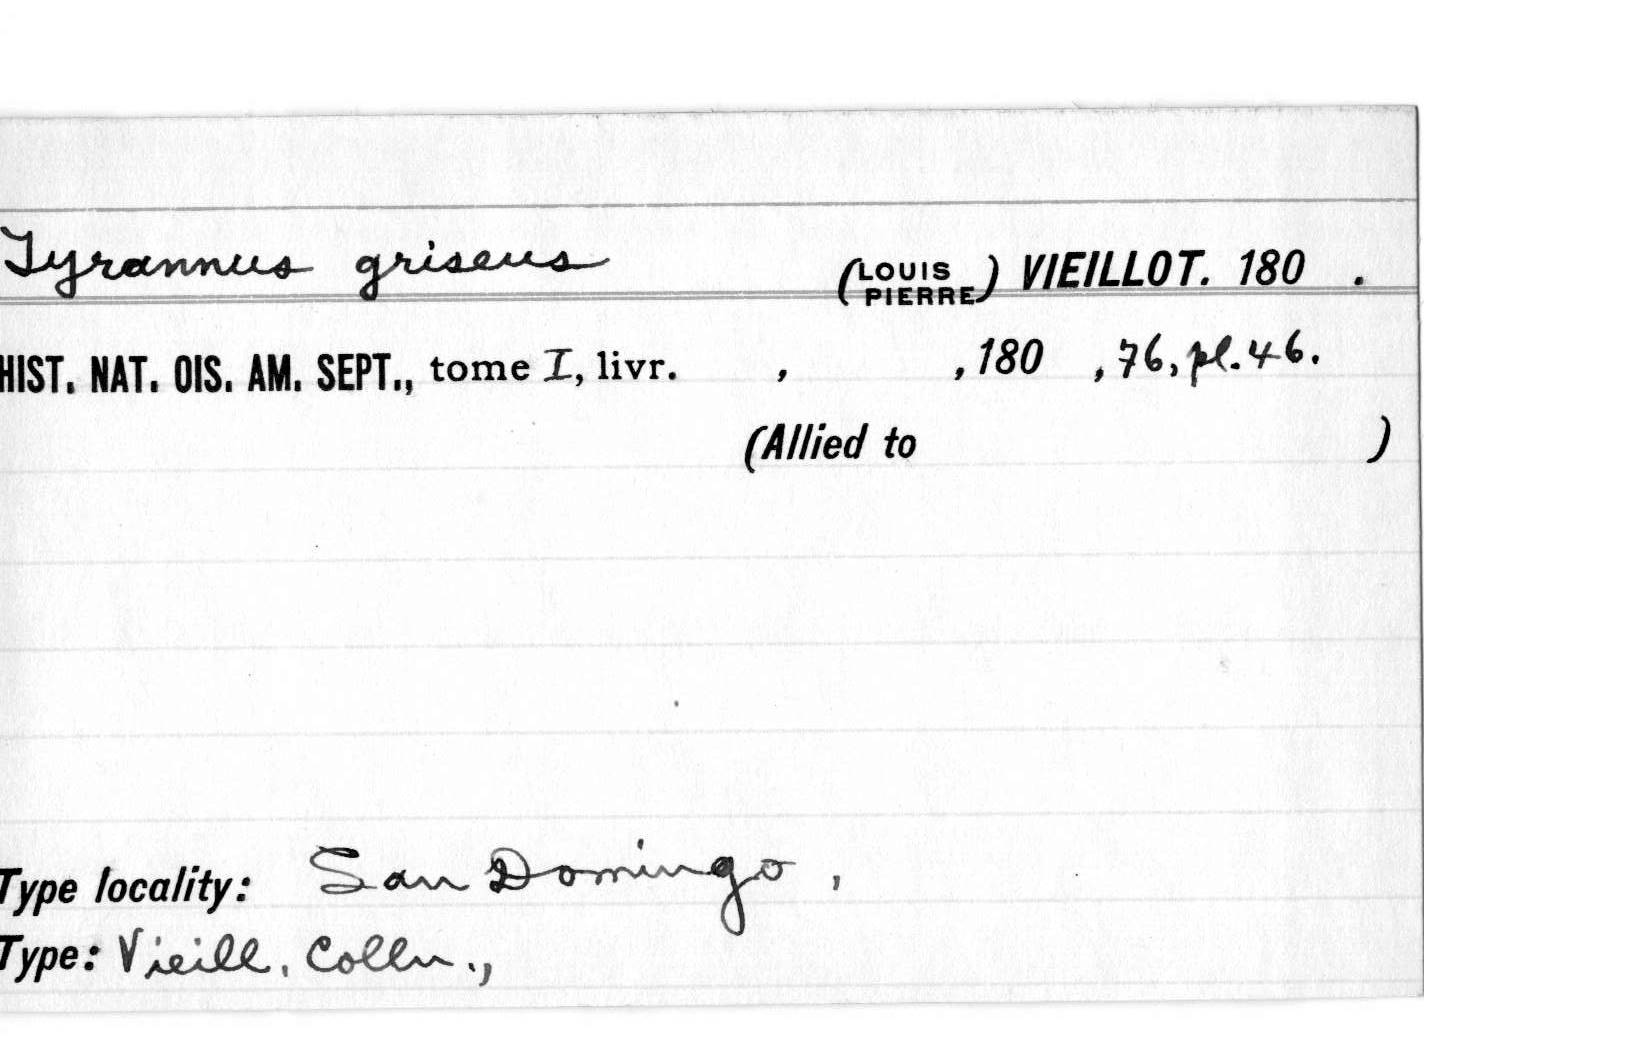 Tyrannus griseus (LOUIS PIERRE) VIEILLOT. 180 .
HIST. NAT. OIS. AM. SEPT., tome I, livr. , , 180 , 76, pl. 46.
(Allied to )
Type locality: San Domingo ,
Type: Vieill. Colln.,